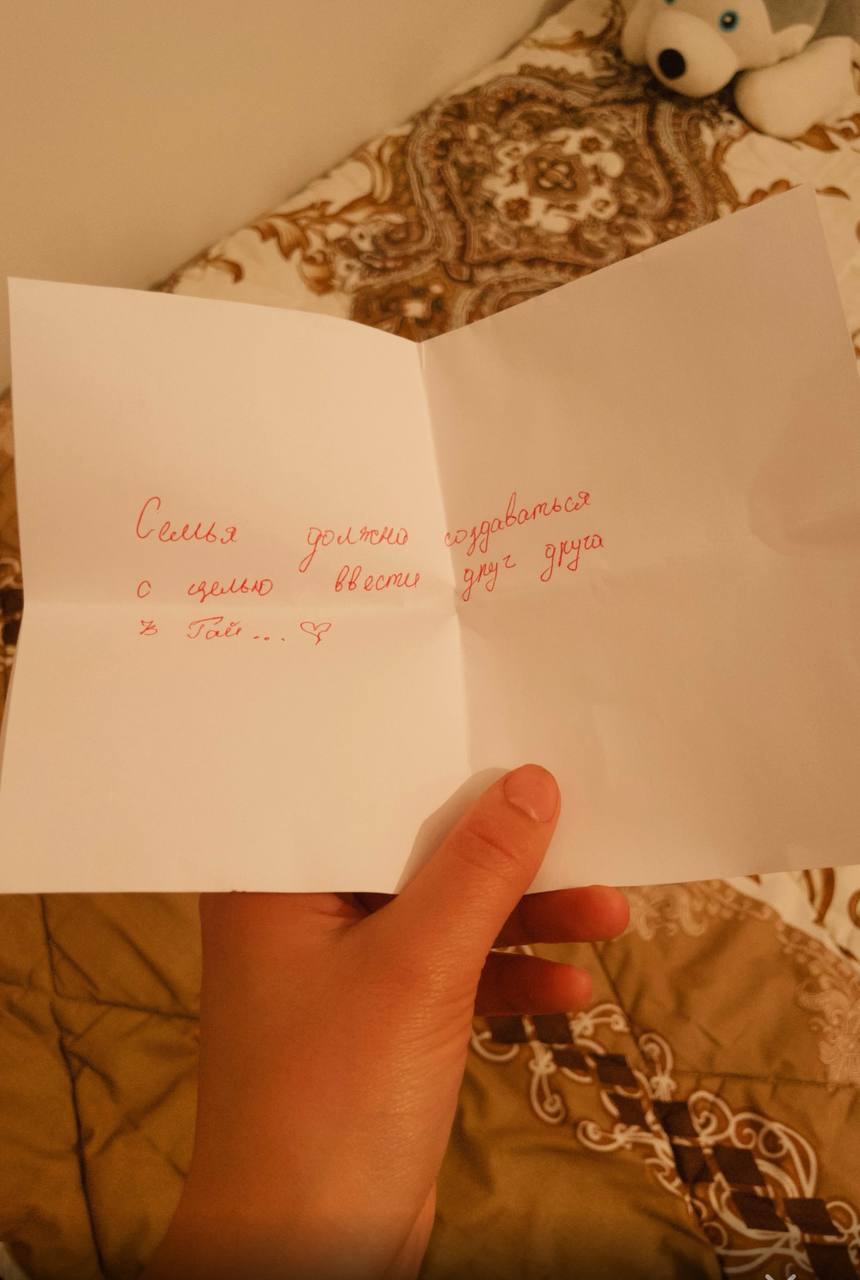 Семья должно создаваться
с целью ввести друг друга
в Гай... ♡